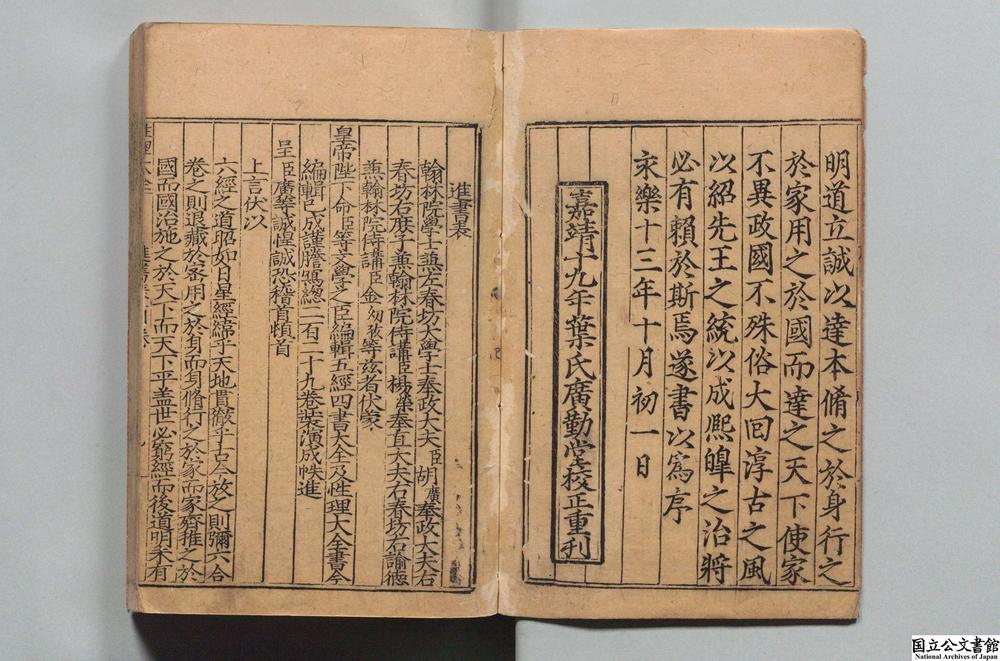 明道立誠以達本脩之於身行之
於家用之於國而達之天下使家
不異政國不殊俗大回淳古之風
以紹先王之統以成熙皥之治將
必有賴於斯焉遂書以爲序
永樂十三年十月初一日
嘉靖十九年葉氏廣勤堂校正重刋
進書表
翰林院學士兼左春坊大學士奉政大夫臣胡廣奉政大夫右
春坊右庶子兼翰林院侍講臣楊榮奉直大夫右春坊右諭德
兼翰林院侍講臣金幼孜等兹者伏蒙
皇帝陛下命臣等文學之臣編輯五經四書大全及性理大全書今
編輯已成謹謄寫總二百二十九卷裝潢成帙進
呈臣廣等誠惶誠恐稽首頓首
上言伏以
六經之道昭如日星經緯乎天地貫徹乎古今放之則彌六合
卷之則退藏於密用之於身而身脩行之於家而家齊推之於
國而國治施之於天下而天下平盖世必窮經而後道明未有
性理大全
国立公文書館
National Archives of Japan